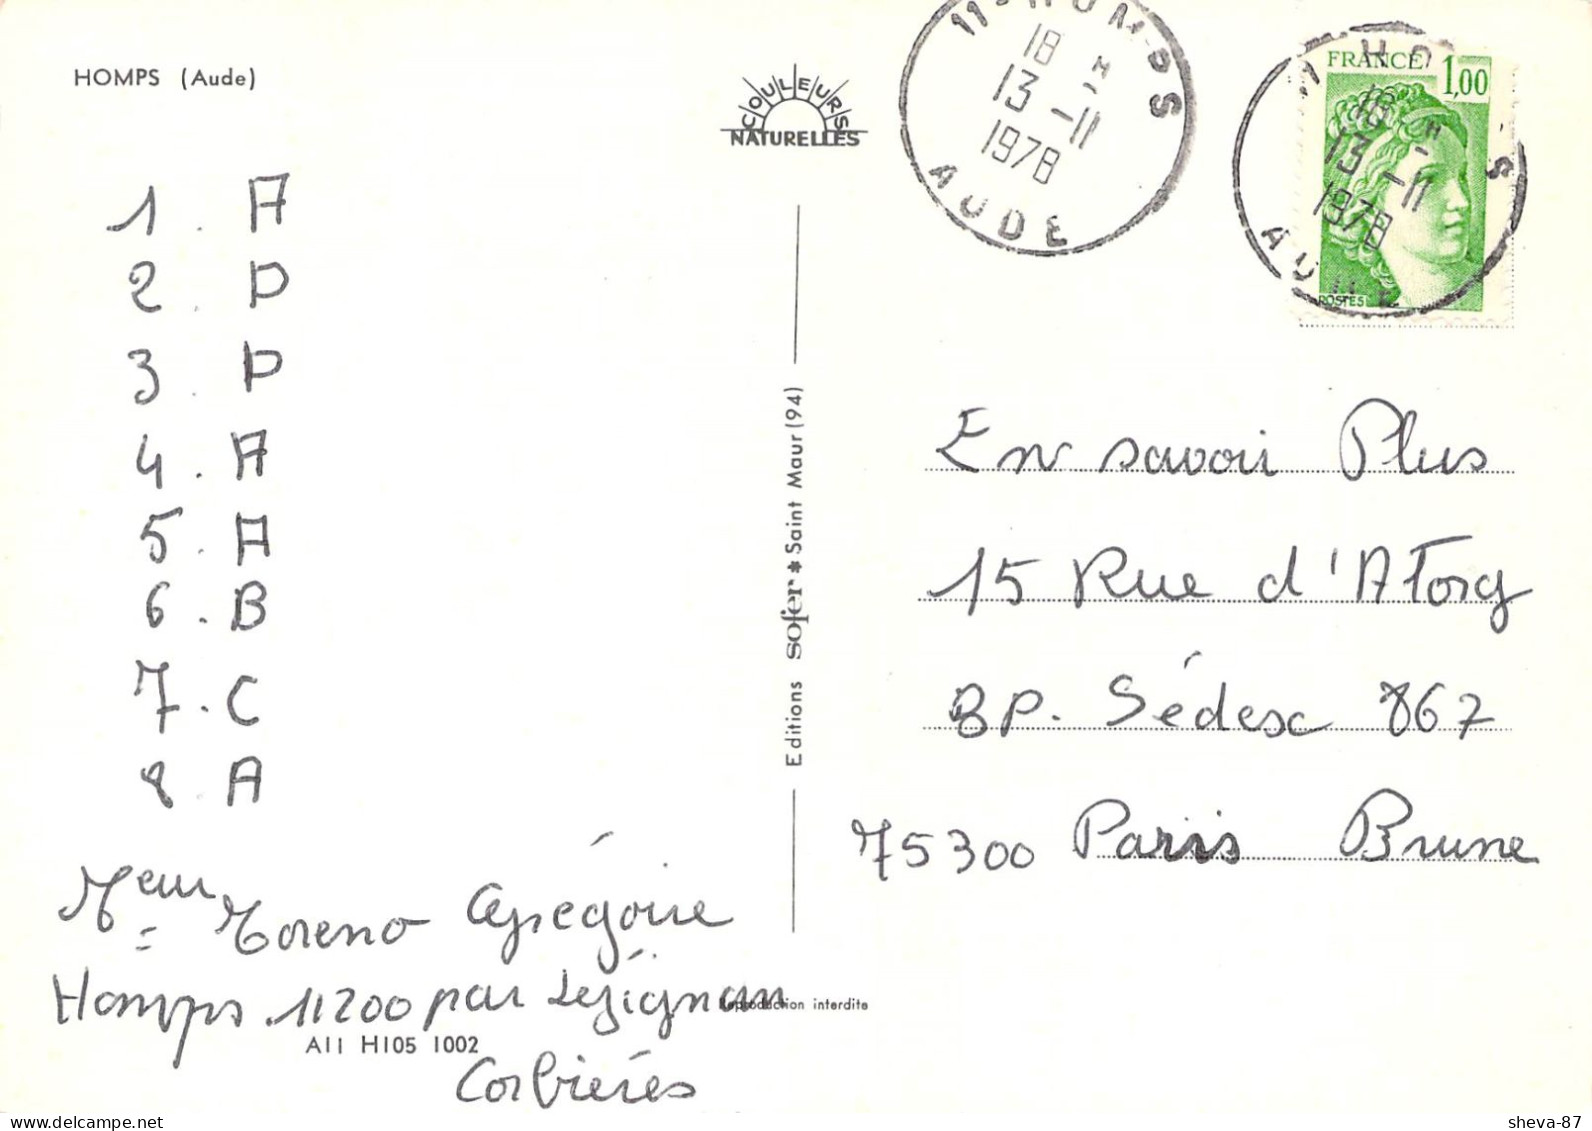 HOMPS (Aude)
COULEURS
NATURELLES
11-HOMPS
18 H
13-11
1978
AUDE
FRANCE 1,00
18 H
13-11
1978
AUDE
POSTES
1. A
2. D
3. D
4. A
5. A
6. B
7. C
8 A
Meur Moreno Grégoire
Homps 11200 par Lézignan
Corbières
A11 H105 1002
Editions sofer * Saint Maur (94)
Reproduction interdite
En savoir Plus
15 Rue d'A
BP. Sédesc 867
75300 Paris Brune
sheva-87